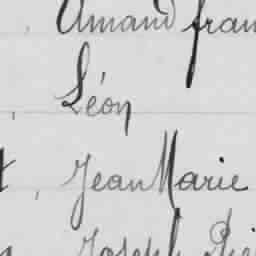 Amand fran
Léon
Jean Marie
Joseph Pie